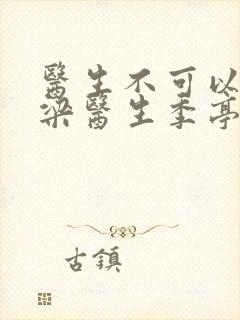 醫生不可以
梁醫生季亭
古鎮